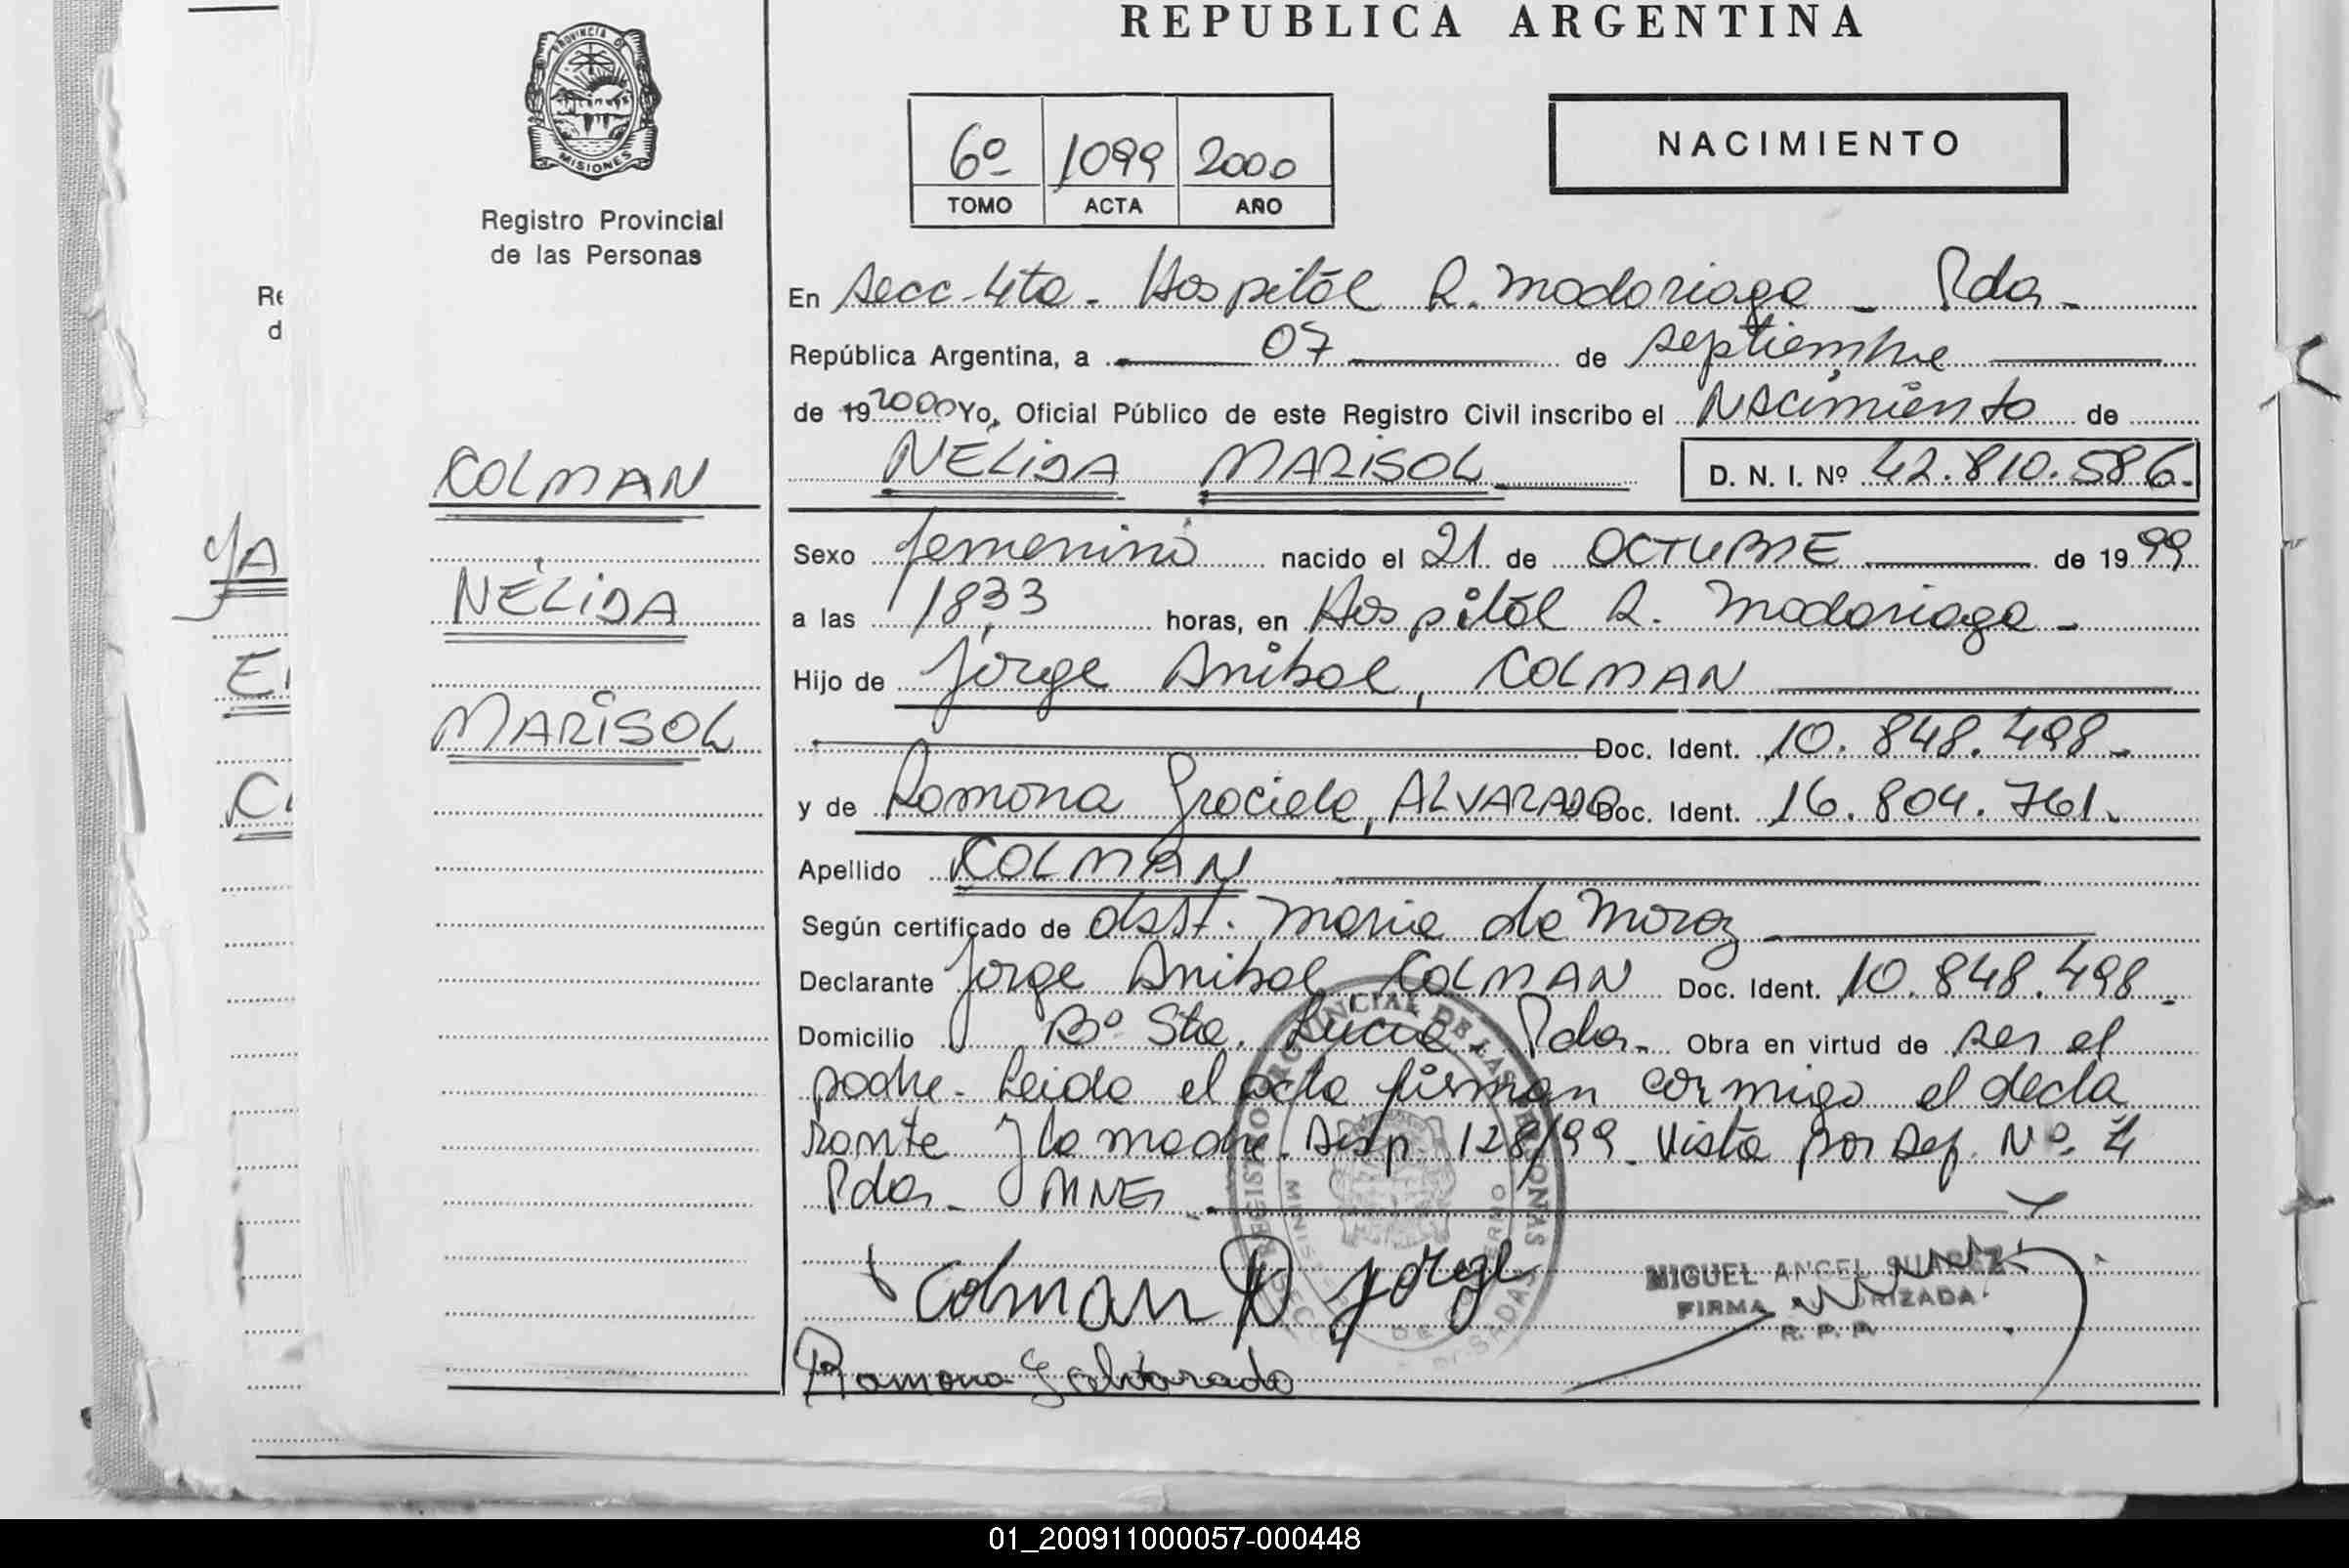 REPUBLICA ARGENTINA
PROVINCIA DE
MISIONES
Registro Provincial
de las Personas
6º 1099 2000
TOMO ACTA AÑO
NACIMIENTO
En Secc-4ta. Hospital R. Madariaga - Pdas-
República Argentina, a 07 de septiembre
de 19 2000 Yo, Oficial Público de este Registro Civil inscribo el Nacimiento de
NÉLIDA MARISOL D. N. I. Nº 42.810.586.
COLMAN
NÉLIDA
MARISOL
Sexo femenino nacido el 21 de OCTUBRE de 1999
a las 18,33 horas, en Hospital R. Madariaga-
Hijo de Jorge Anibal, COLMAN
Doc. Ident. 10.848.498-
y de Ramona Graciela, ALVARADO Doc. Ident. 16.804.761.
Apellido COLMAN
Según certificado de obst. Maria de Moraz
Declarante Jorge Anibal COLMAN Doc. Ident. 10.848.498.
Domicilio Bº Sta. Lucia. Pdas- Obra en virtud de ser el
padre- Leida el acta firman conmigo el decla
rante y la madre. Disp. 128/99. Vista por Def. Nº 4
Pdas- MNES.
Colman A Jorge
MIGUEL ANGEL SUAREZ
FIRMA AUTORIZADA
R. P. P.
Ramona G Alvarado
REGISTRO PROVINCIAL DE LAS PERSONAS
01_200911000057-000448